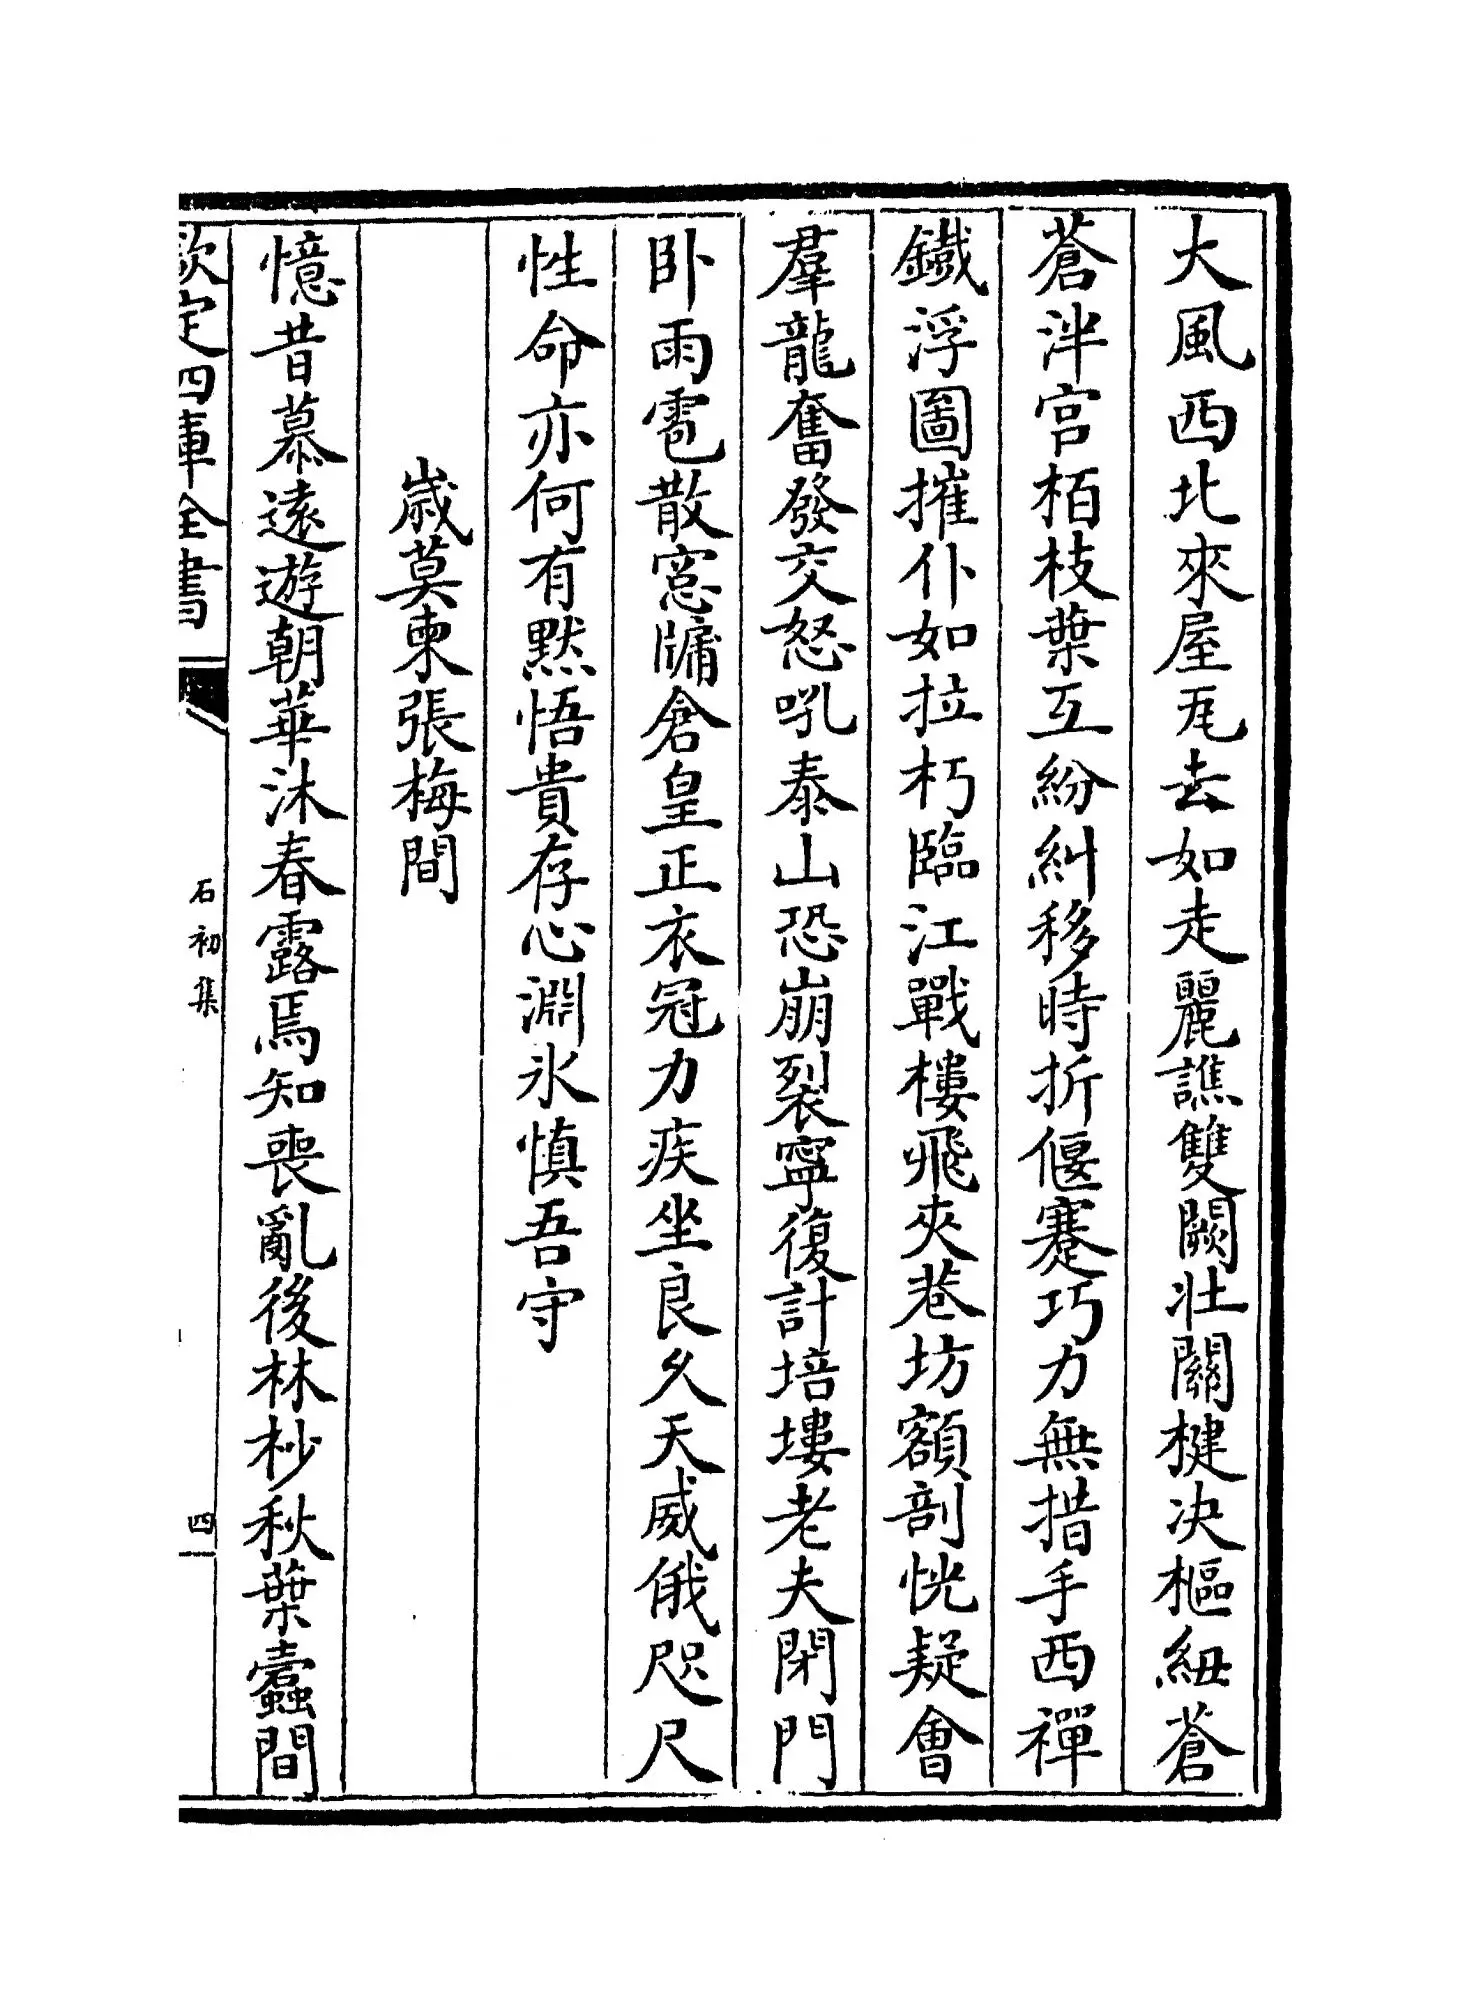 大風西北來屋瓦去如走麗譙雙闕壯關楗决樞紐蒼
蒼泮宮栢枝葉互紛糾移時折偃蹇巧力無措手西禪
鐵浮圖摧仆如拉朽臨江戰樓飛夾巷坊額剖恍疑會
羣龍奮發交怒吼泰山恐崩裂寧復計培塿老夫閉門
卧雨雹散窓牖倉皇正衣冠力疾坐良久天威俄咫尺
性命亦何有默悟貴存心淵氷慎吾守
歳莫柬張梅間
憶昔慕遠遊朝華沐春露焉知喪亂後林杪秋葉蠹間
欽定四庫全書
石初集
四